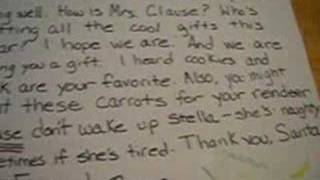 ng well. How is Mrs. Clause? Who's
tting all the cool gifts this
ar? I hope we are. And we are
ng you a gift. I heard cookies and
k are your favorite. Also, you might
t these carrots for your reindeer
se don't wake up stella - she's naughty
etimes if she's tired. Thank you, Santa